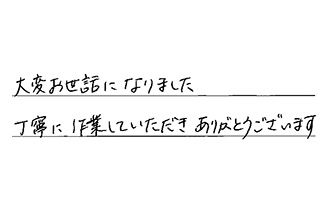 大変お世話になりました
丁寧に作業していただきありがとうございます